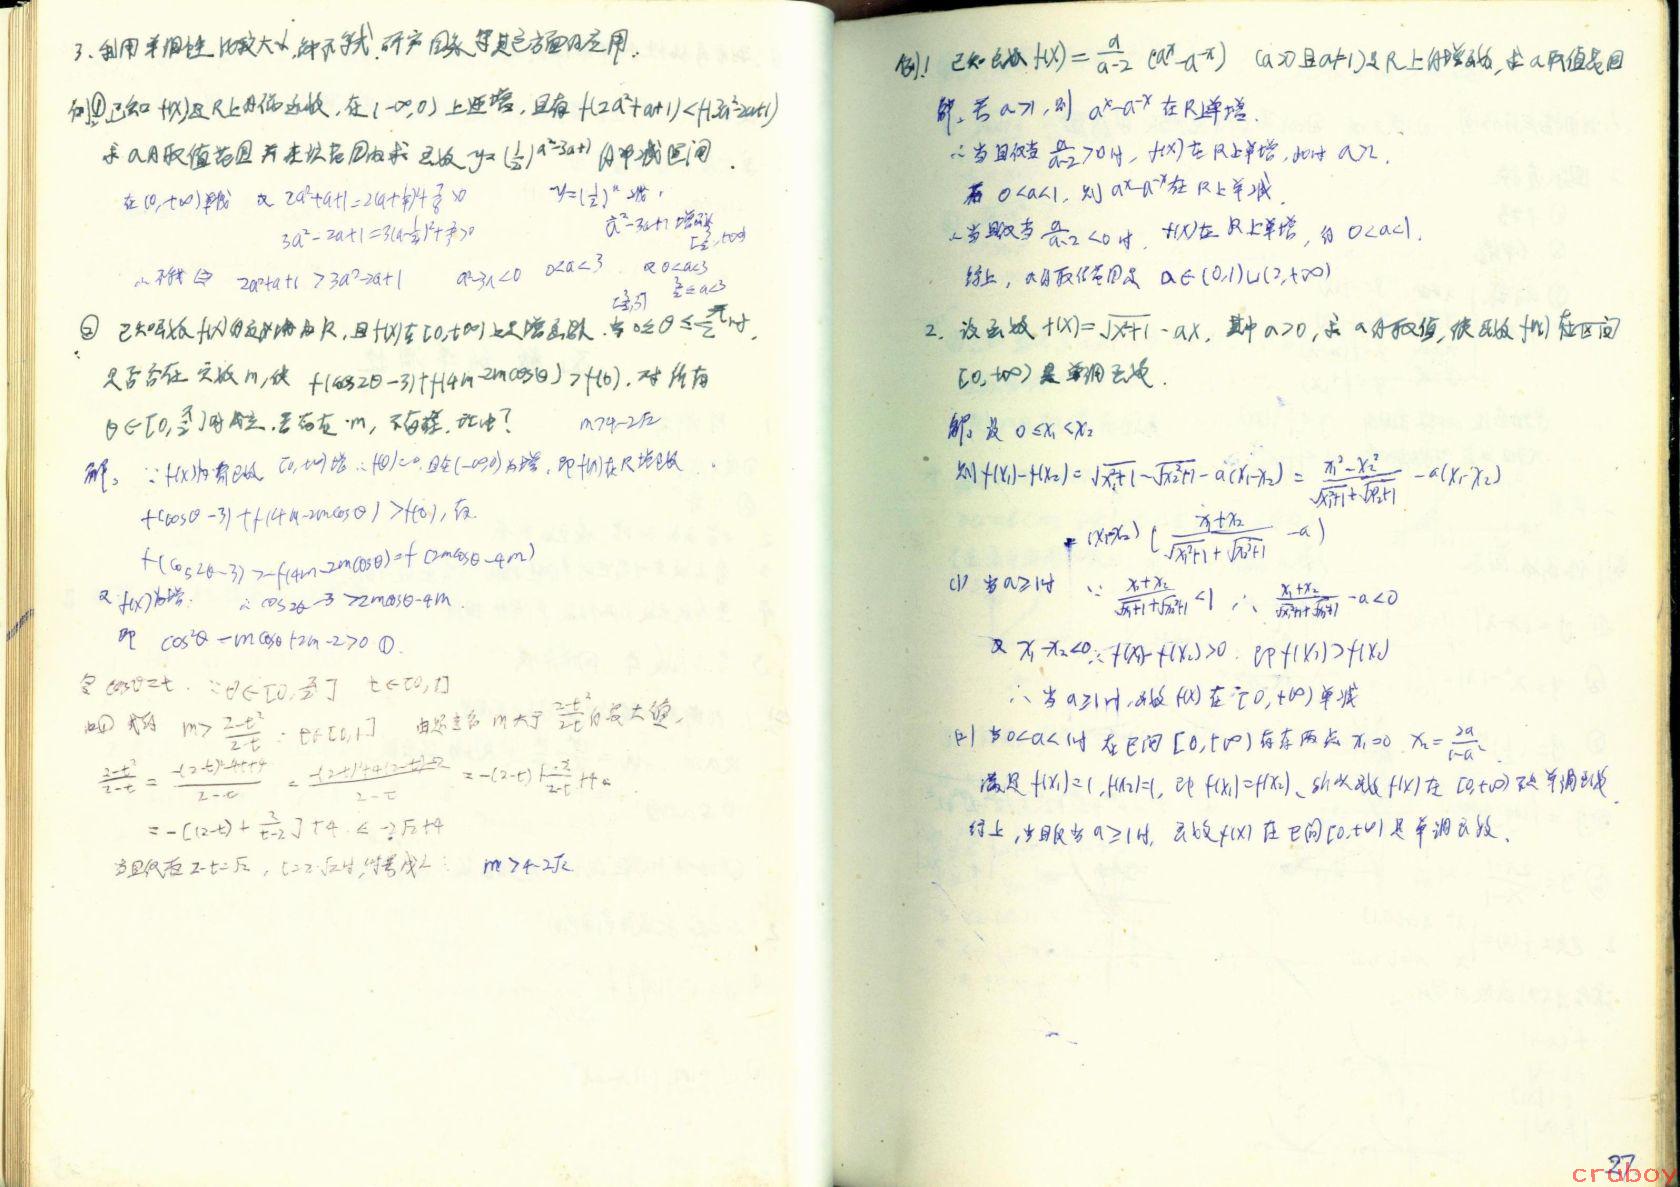 3、利用单调性比较大小,解不等式,研究图象等其它方面的应用.
例① 已知 f(x)是R上的偶函数,在(-∞,0)上递增,且有 f(2a²+a+1)<f(3a²-2a+1)
求a的取值范围 并在该范围内求 函数 y=(1/2)^(a²-3a+1) 的单减区间.
在(0,+∞)单减 又 2a²+a+1=2(a+1/4)²+7/8>0
y=(1/2)^u 减.
3a²-2a+1=3(a-1/3)²+2/3>0
a²-3a+1 增函数
[3/2,+∞)
∴不等式⇔ 2a²+a+1>3a²-2a+1 a²-3a<0 0<a<3 又0<a<3
3/2≤a<3
② 已知函数f(x)的定义域为R,且f(x)在[0,+∞)上是增函数.当0≤θ≤π/2时,
是否存在实数m,使 f(cos2θ-3)+f(4m-2mcosθ)>f(0),对所有
θ∈[0,π/2]均成立,若存在m, m>4-2√2
解: ∵f(x)为奇函数 [0,+∞)增 ∴f(0)=0 且在(-∞,0)为增,即f(x)在R增函数.
f(cosθ-3)+f(4m-2mcosθ)>f(0),有.
f(cos2θ-3)>-f(4m-2mcosθ)=f(2mcosθ-4m)
又f(x)为增. ∴cos2θ-3>2mcosθ-4m.
即 cos²θ-mcosθ+2m-2>0 ①.
令cosθ=t. ∵θ∈[0,π/2] t∈[0,1]
由① m>(2-t²)/(2-t) ∵t∈[0,1] m大于(2-t²)/(2-t)的最大值.
=-[(2-t)+2/(2-t)]+4 ≤-2√2+4
当且仅当2-t=√2,t=2-√2时,等号成立 ∴ m>4-2√2
例1 已知函数 f(x)=a/(a-2) (aˣ-a⁻ˣ) (a>0且a≠1)是R上的增函数,求a取值范围
解:若a>1,则 aˣ-a⁻ˣ在R单增.
∴当且仅当 a/(a-2)>0时,f(x)在R上单增,此时 a>2.
若 0<a<1,则aˣ-a⁻ˣ在R上单减.
∴当且仅当 a/(a-2)<0时,f(x)在R上单增,的 0<a<1.
综上,a的取值范围是 a∈(0,1)∪(2,+∞)
2. 设函数f(x)=√(x²+1)-ax,其中a>0,求a的取值,使函数f(x)在区间
[0,+∞)是单调函数.
解: 设 0≤x₁<x₂
则f(x₁)-f(x₂)=√(x₁²+1)-√(x₂²+1)-a(x₁-x₂)=(x₁²-x₂²)/(√(x₁²+1)+√(x₂²+1))-a(x₁-x₂)
=(x₁-x₂)((x₁+x₂)/(√(x₁²+1)+√(x₂²+1))-a)
(1) 当a≥1时 ∵(x₁+x₂)/(√(x₁²+1)+√(x₂²+1))<1 ∴(x₁+x₂)/(√(x₁²+1)+√(x₂²+1))-a<0
又 x₁-x₂<0 ∴f(x₁)-f(x₂)>0. 即f(x₁)>f(x₂)
∴当a≥1时,函数f(x)在[0,+∞)单减
(2)当0<a<1时 在区间[0,+∞)存在两点 x₁=0 x₂=2a/(1-a²)
满足f(x₁)=1,f(x₂)=1,即f(x₁)=f(x₂)、所以函数f(x)在[0,+∞)不是单调函数.
综上,当且仅当a≥1时,函数f(x)在区间[0,+∞)是单调函数.
27
cruboy